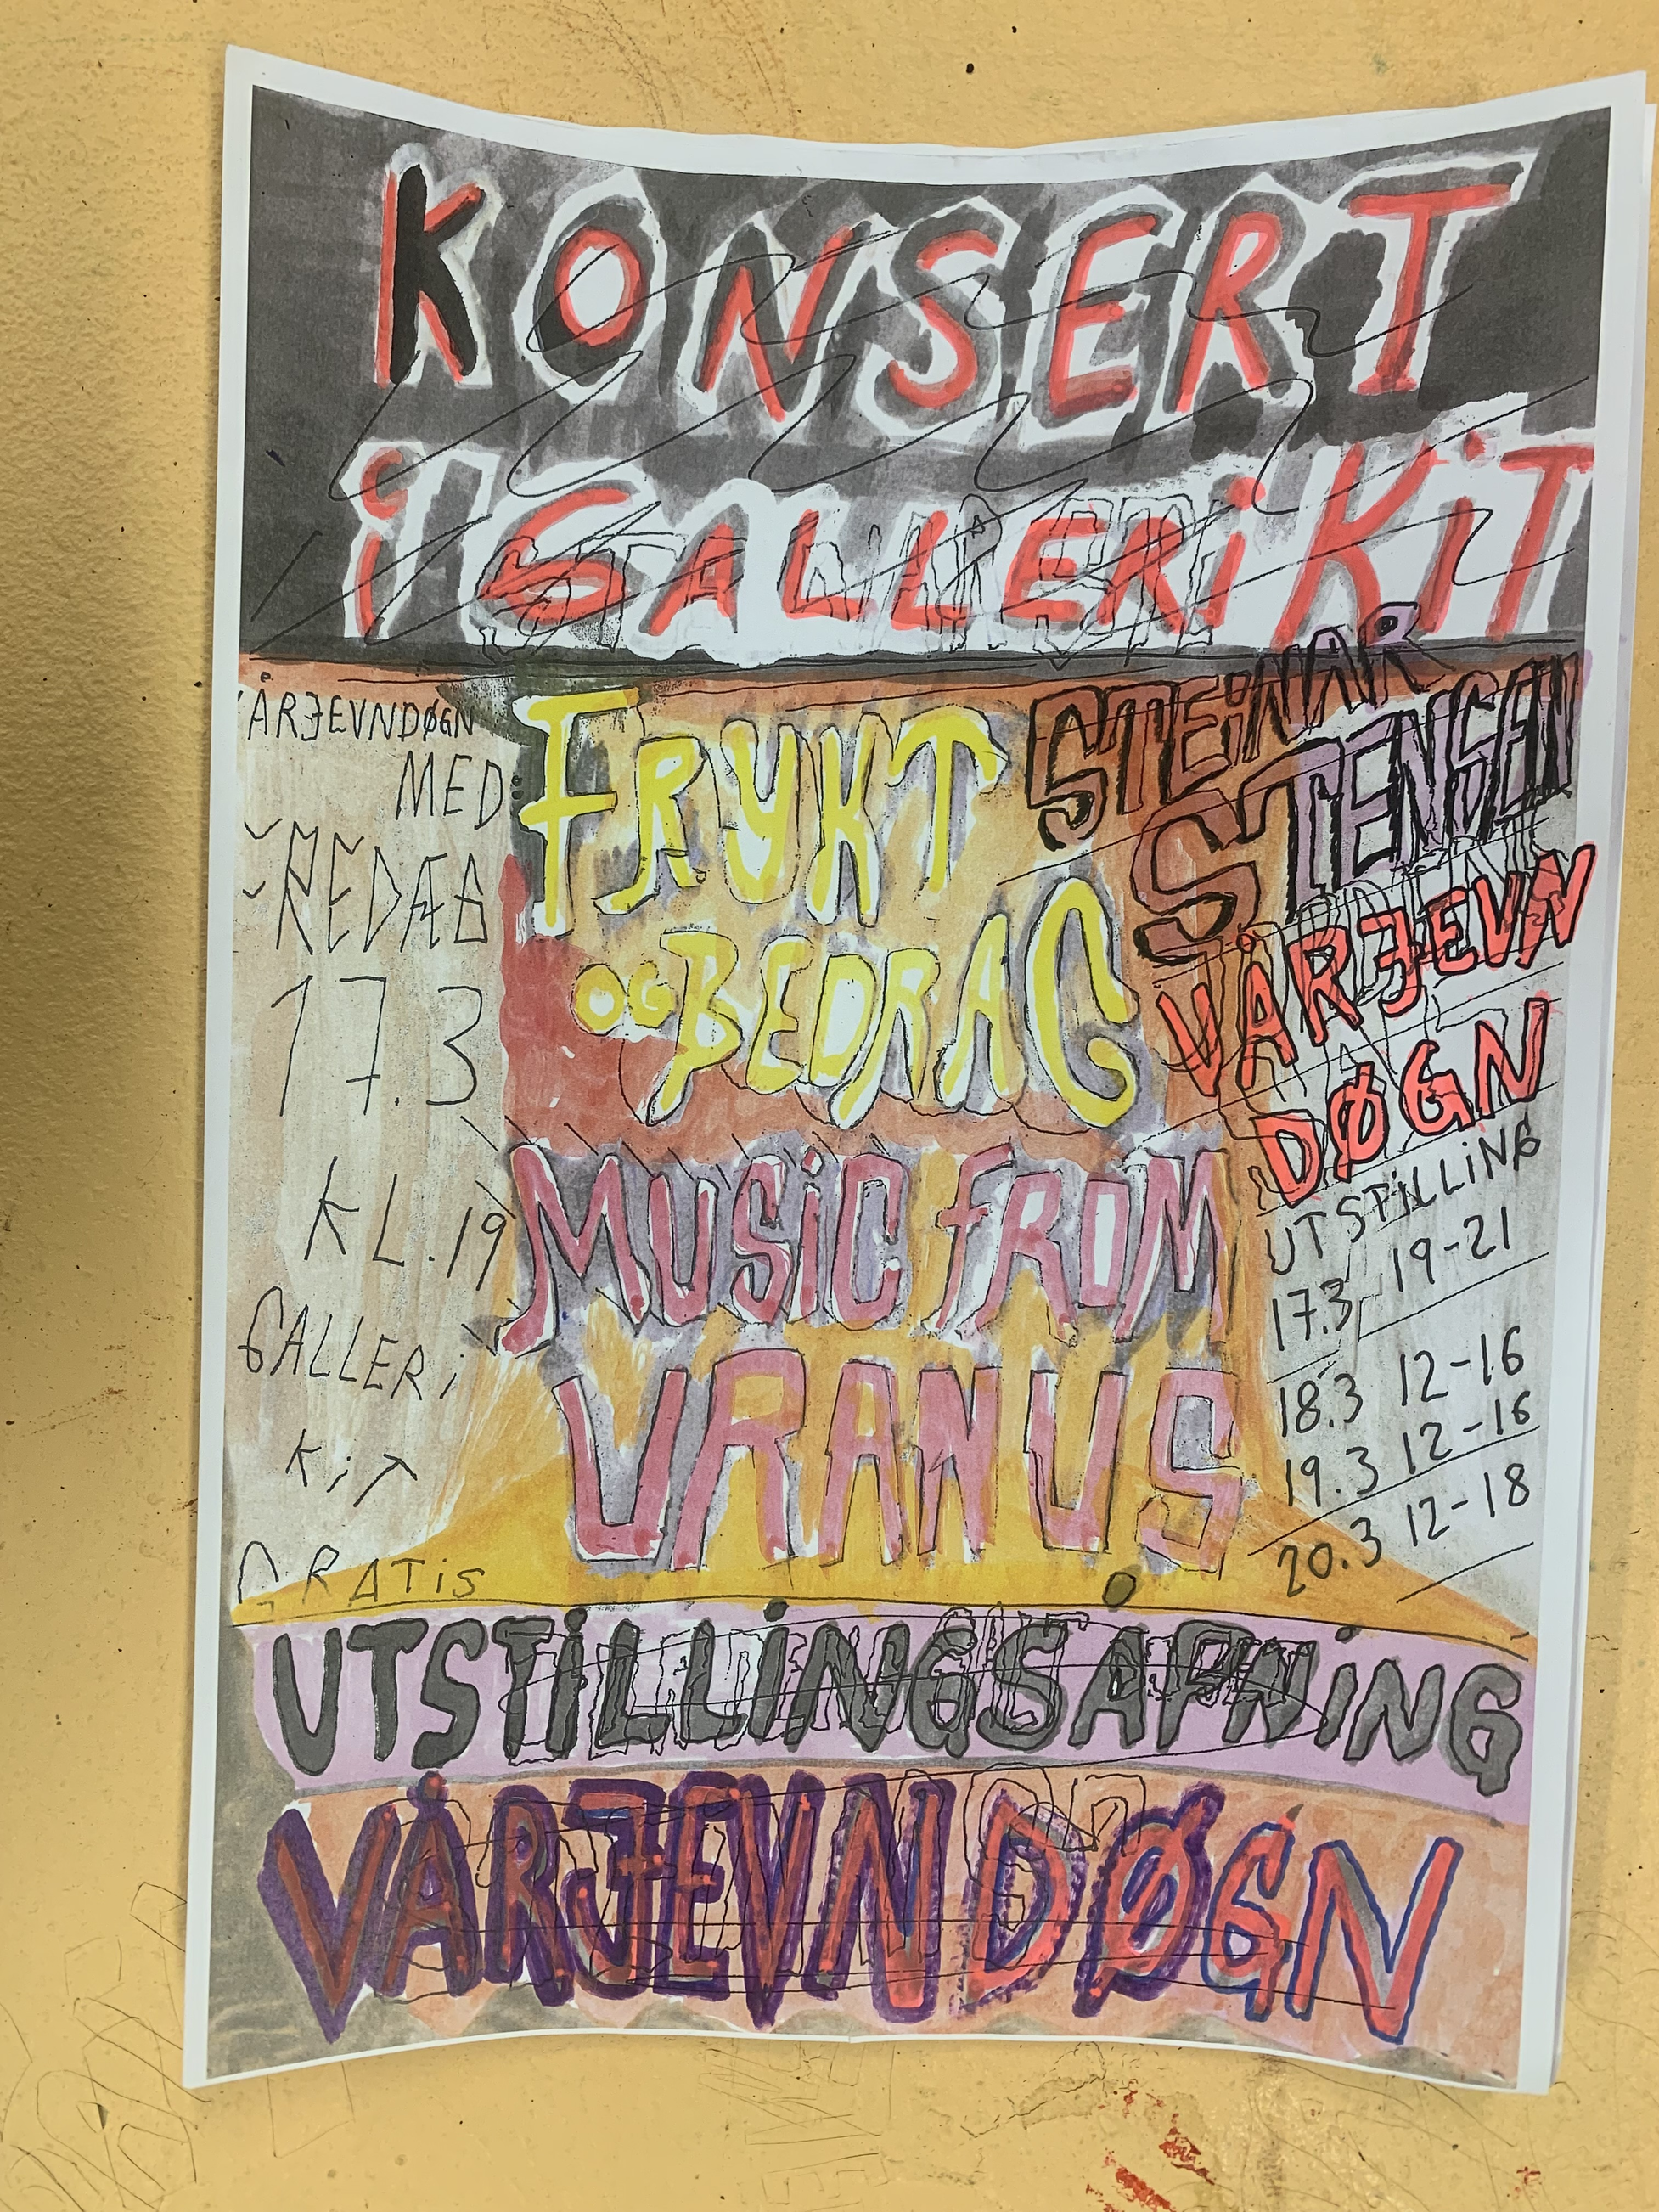 KONSERT
i GALLERi KiT
ÅRJEVNDØGN
MED:
FRYKT
OG BEDRAG
MUSiC FROM
URANUS
17.3
KL.19
GALLERi
KiT
GRATiS
STEiNAR
STENSEN
VÅRJEVN
DØGN
UTSTiLLiNG
17.3 19-21
18.3 12-16
19.3 12-16
20.3 12-18
UTSTiLLiNGSÅPNiNG
VÅRJEVNDØGN